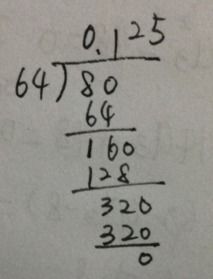 0.125
64)80
64
160
128
320
320
0